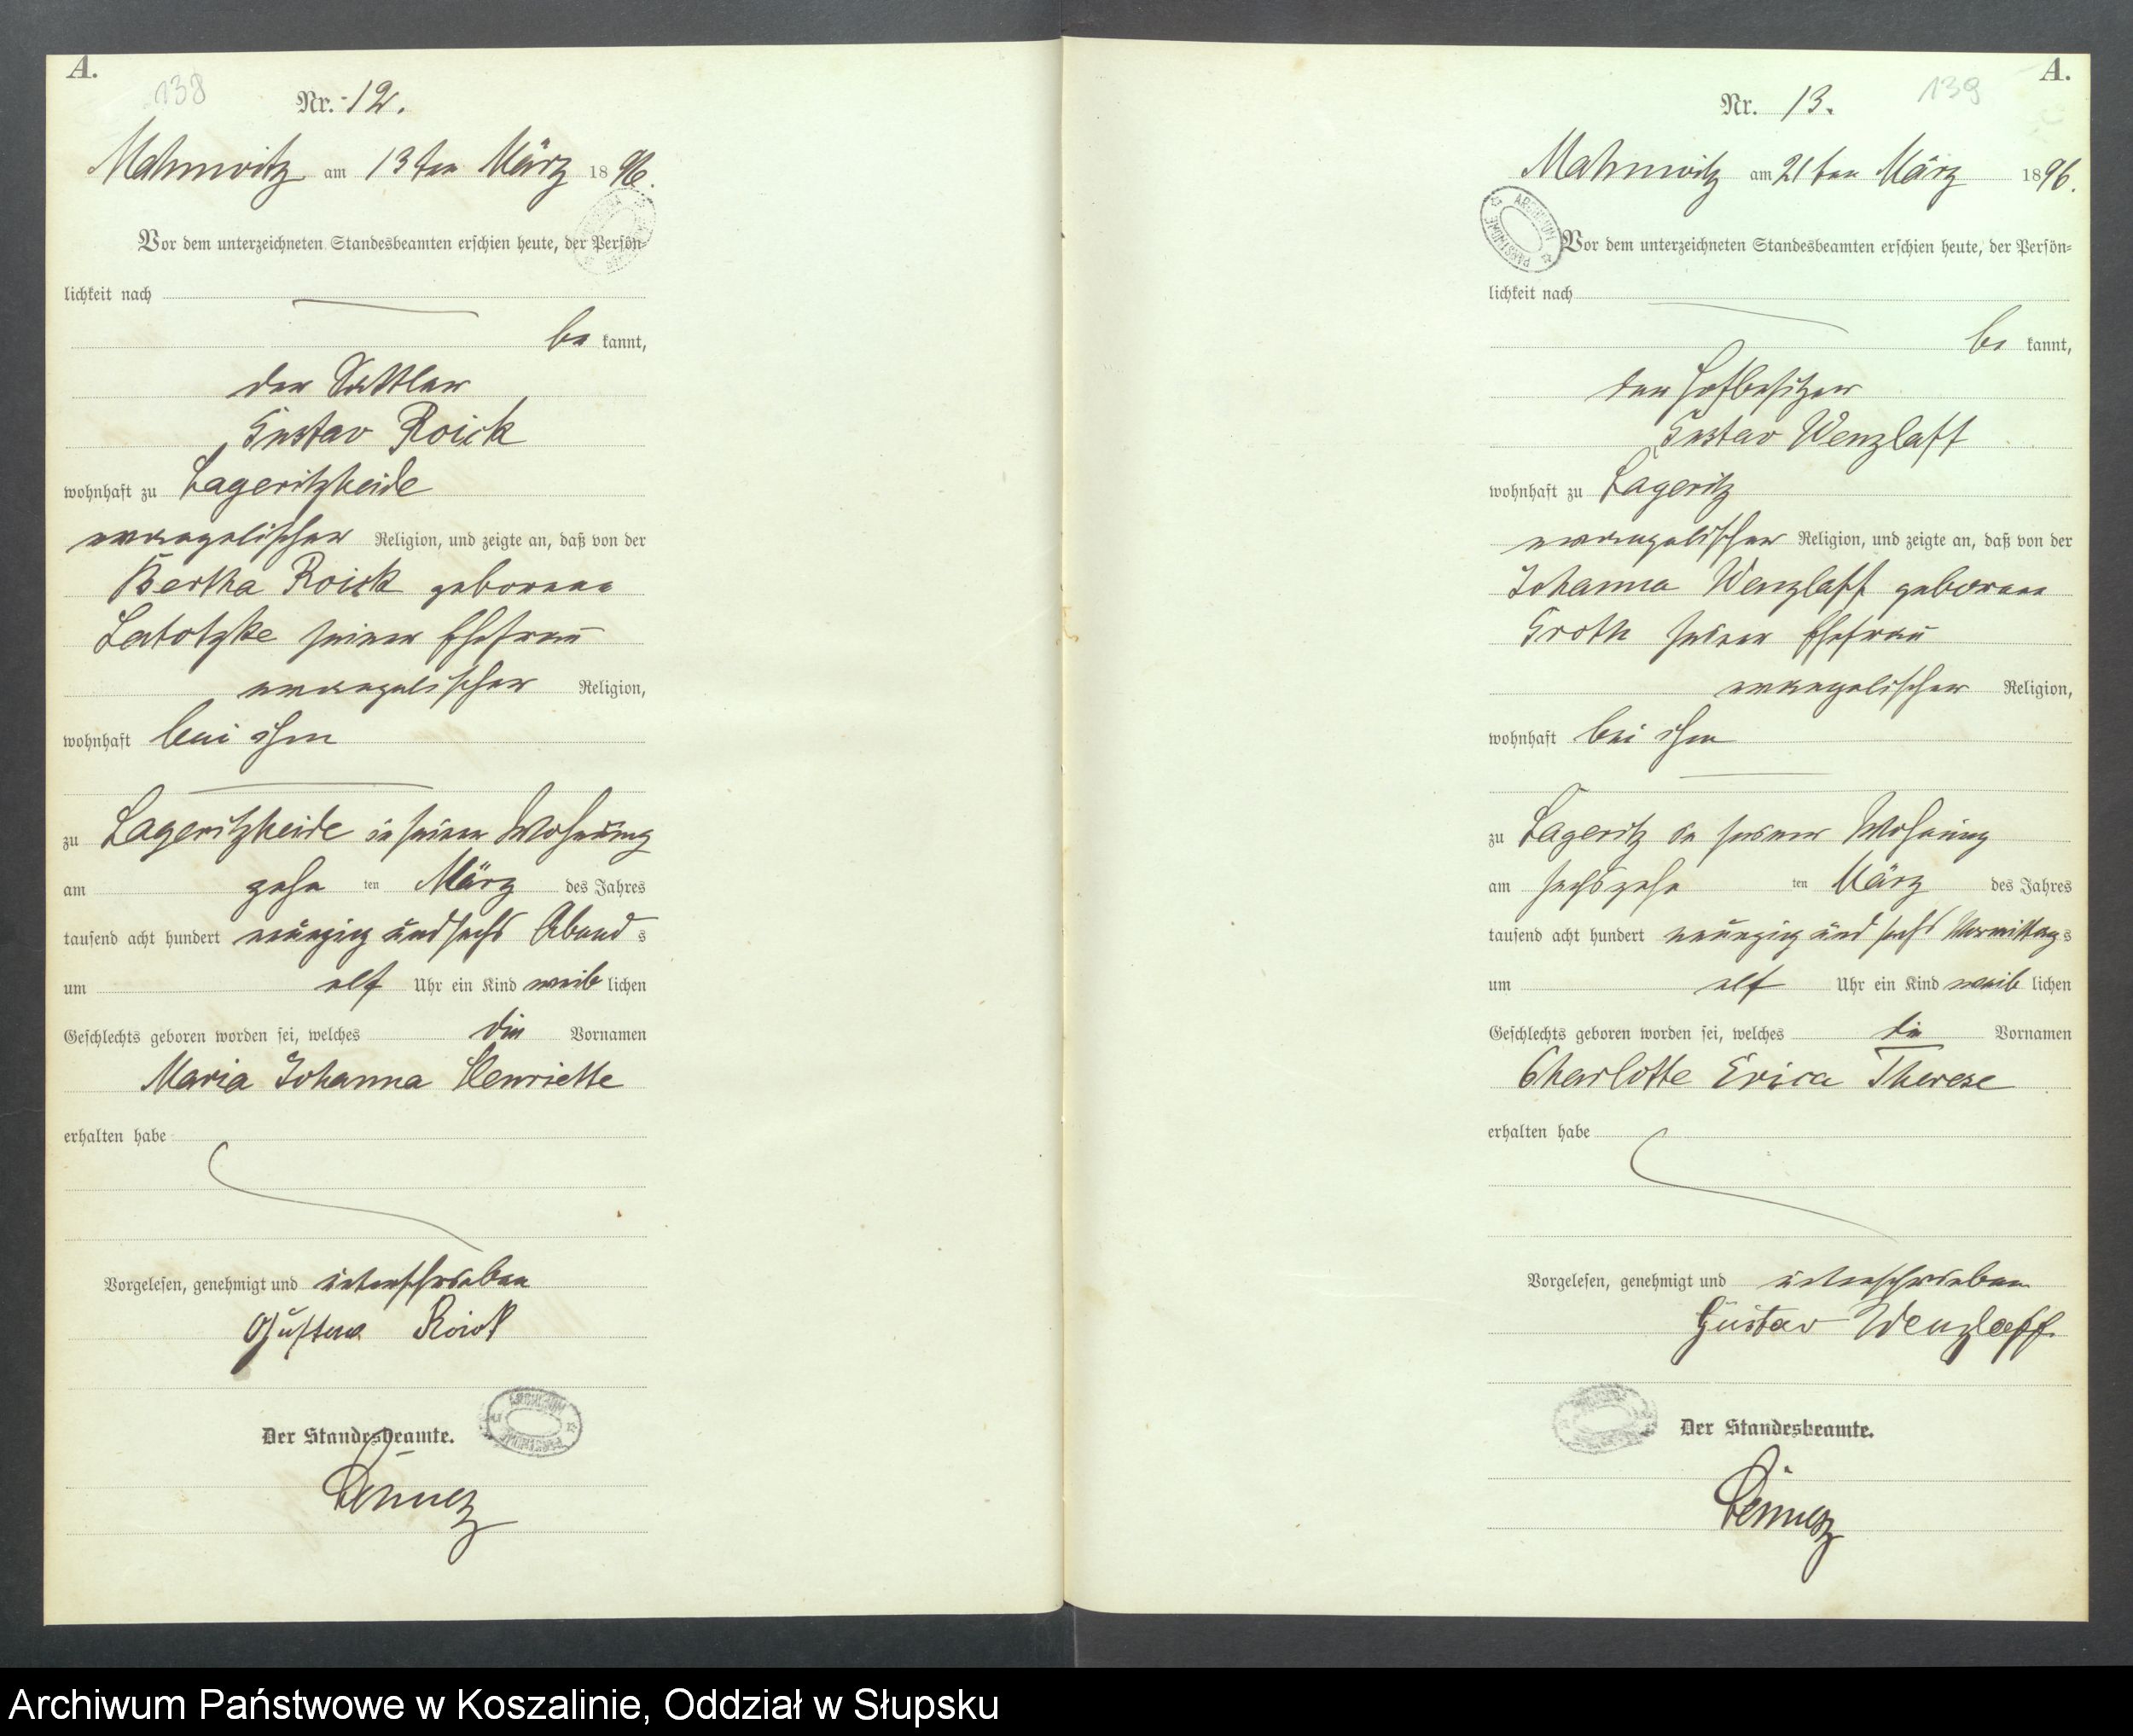 A.
138
Nr. 12.
Mahnwitz am 13ten März 1896.
Vor dem unterzeichneten Standesbeamten erschien heute, der Persön-
lichkeit nach
be kannt,
der Sattler
Gustav Roick
wohnhaft zu Lageritzheide
evangelischer Religion, und zeigte an, daß von der
Bertha Roick geborene
Latotzke seiner Ehefrau
evangelischer Religion,
wohnhaft bei ihm
zu Lageritzheide in seiner Wohnung
am zehn ten März des Jahres
tausend acht hundert neunzig und sechs Abend s
um elf Uhr ein Kind weib lichen
Geschlechts geboren worden sei, welches die Vornamen
Maria Johanna Henriette
erhalten habe
Vorgelesen, genehmigt und unterschrieben
Gustav Roick
Der Standesbeamte.
A.
139
Nr. 13.
Mahnwitz am 21ten März 1896.
Vor dem unterzeichneten Standesbeamten erschien heute, der Persön-
lichkeit nach
be kannt,
der Hofbesitzer
Gustav Wenzlaff
wohnhaft zu Lageritz
evangelischer Religion, und zeigte an, daß von der
Johanna Wenzlaff geborene
Groth seiner Ehefrau
evangelischer Religion,
wohnhaft bei ihm
zu Lageritz in seiner Wohnung
am sechszehn ten März des Jahres
tausend acht hundert neunzig und sechs Vormittag s
um elf Uhr ein Kind weib lichen
Geschlechts geboren worden sei, welches die Vornamen
Charlotte Erica Therese
erhalten habe
Vorgelesen, genehmigt und unterschrieben
Gustav Wenzlaff.
Der Standesbeamte.
Archiwum Państwowe w Koszalinie, Oddział w Słupsku